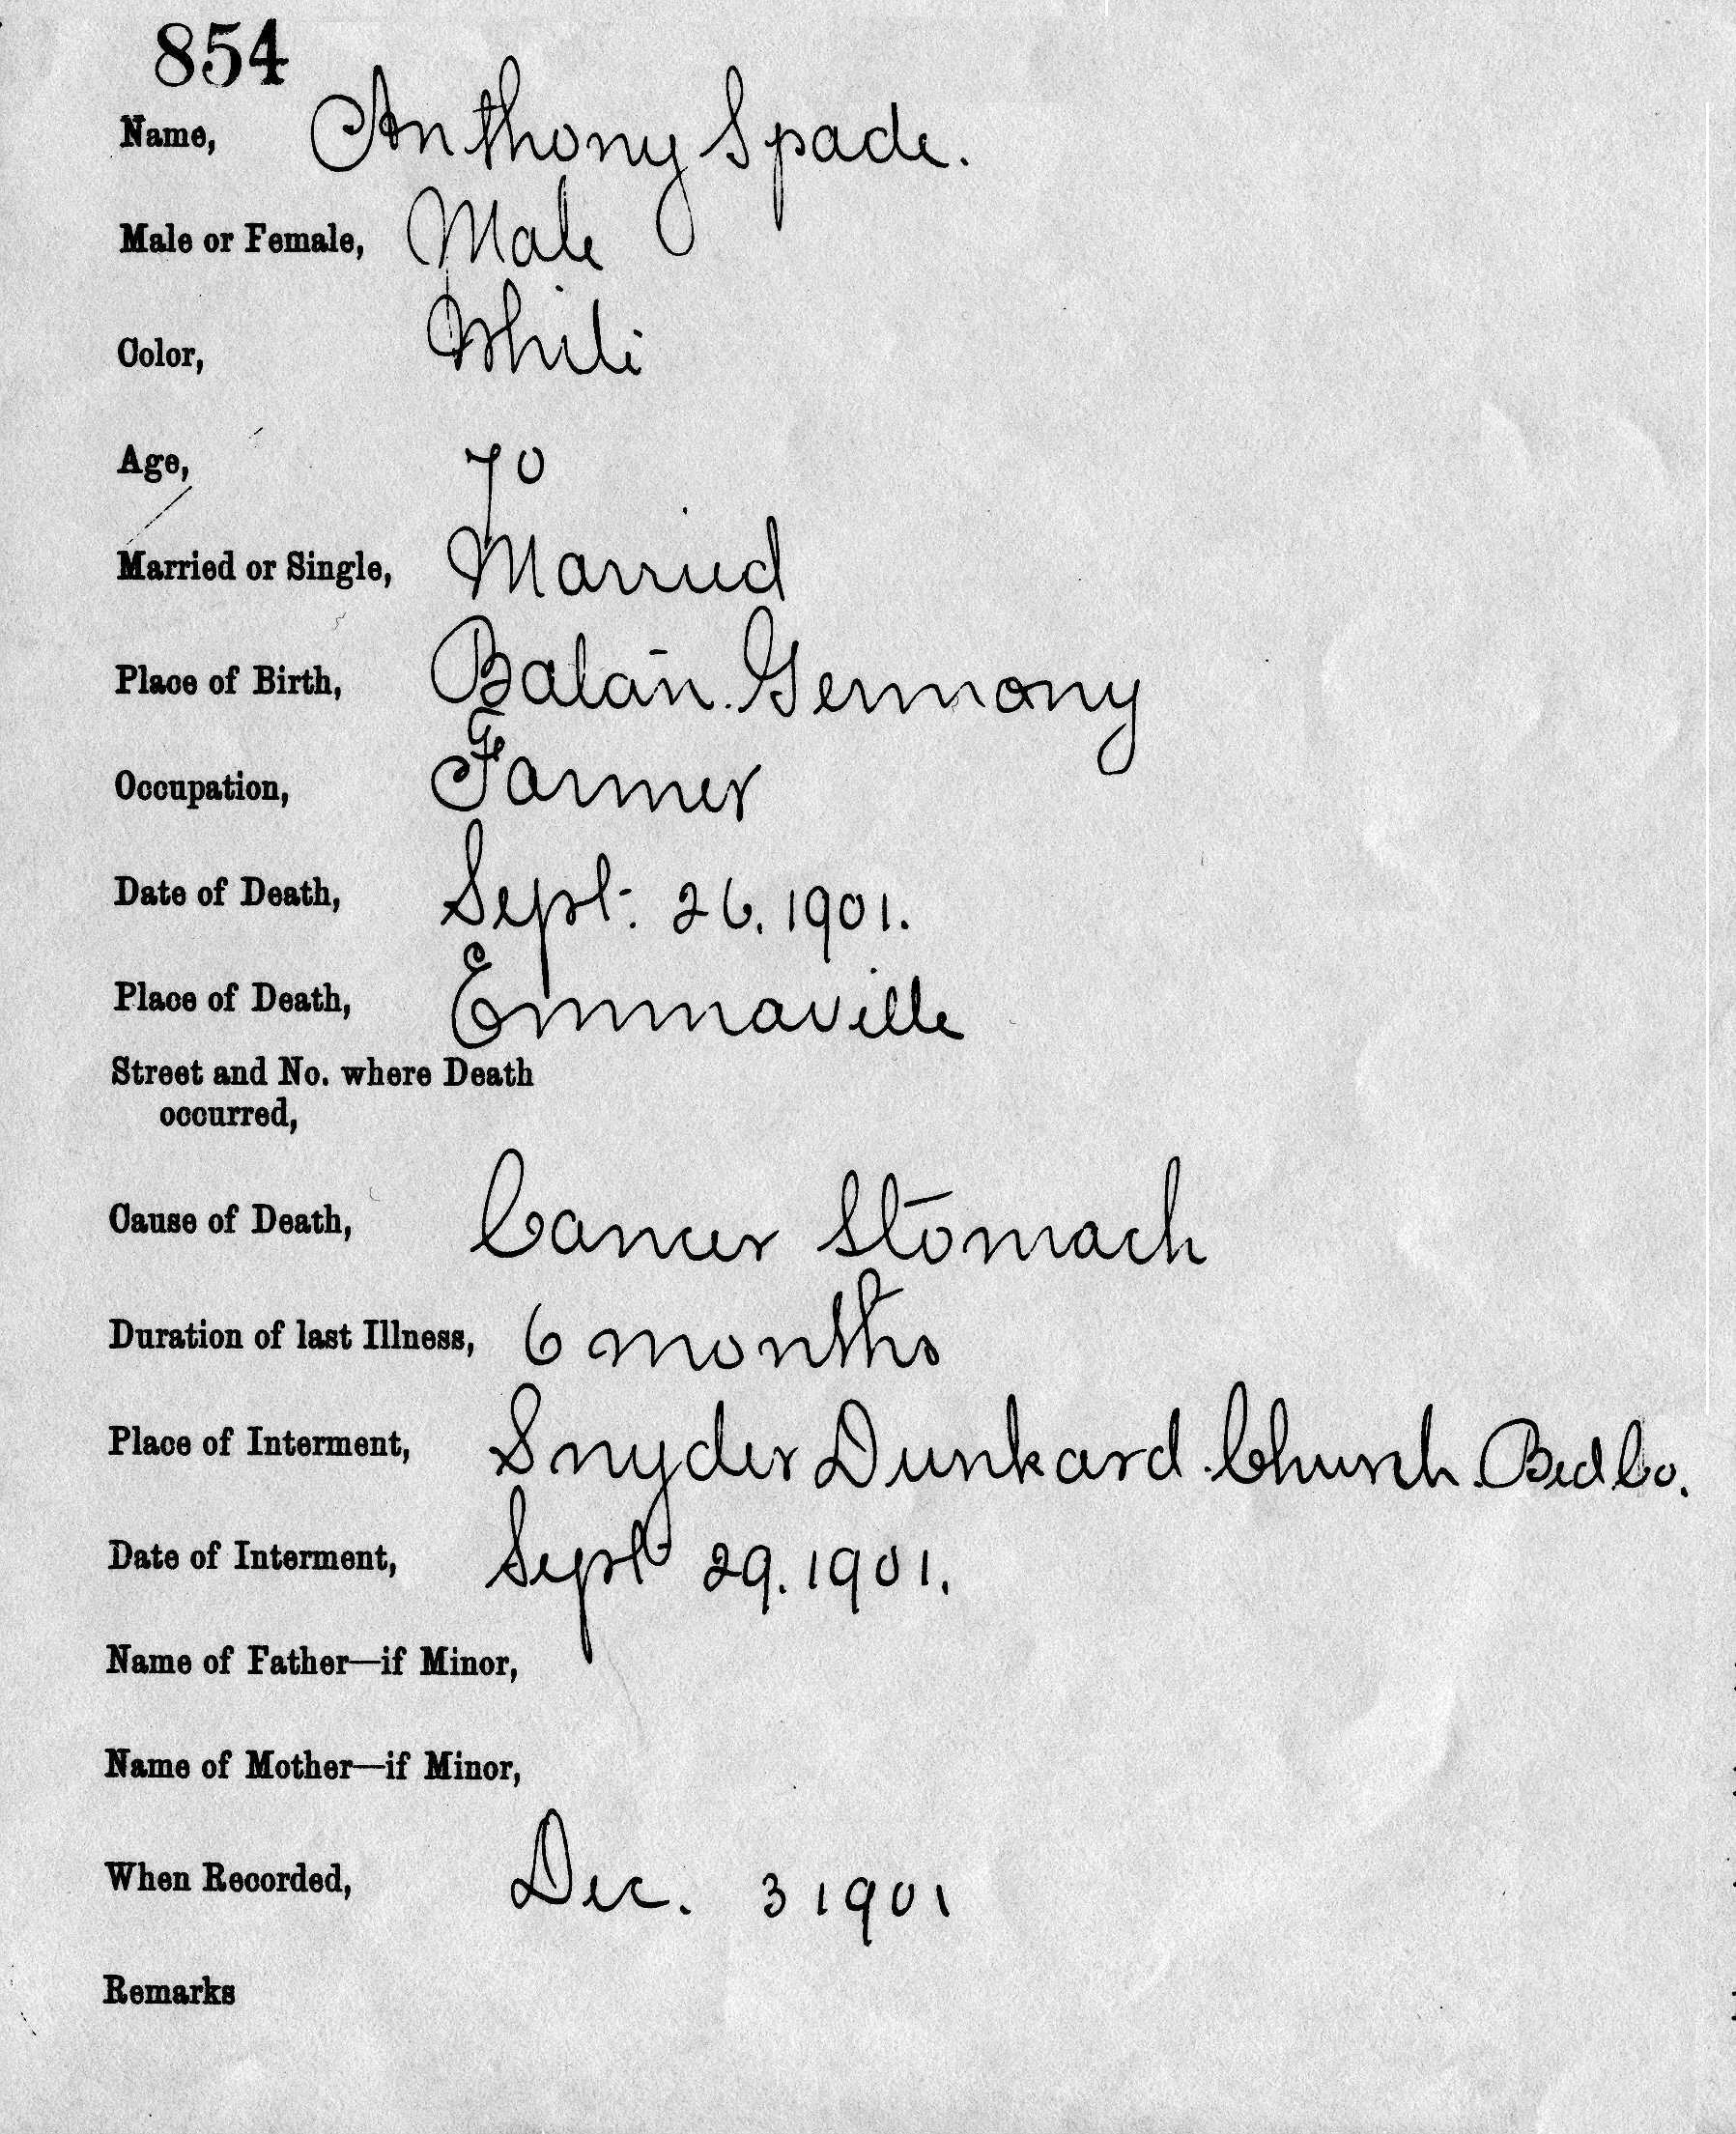 854
Name, Anthony Spade.
Male or Female, Male
Color, White
Age, 70
Married or Single, Married
Place of Birth, Batan. Germony
Occupation, Farmer
Date of Death, Sept. 26. 1901.
Place of Death, Emmaville
Street and No. where Death
occurred,
Cause of Death, Cancer Stomach
Duration of last Illness, 6 months
Place of Interment, Snyder Dunkard. Church. Bed Co.
Date of Interment, Sept 29. 1901.
Name of Father—if Minor,
Name of Mother—if Minor,
When Recorded, Dec. 3 1901
Remarks